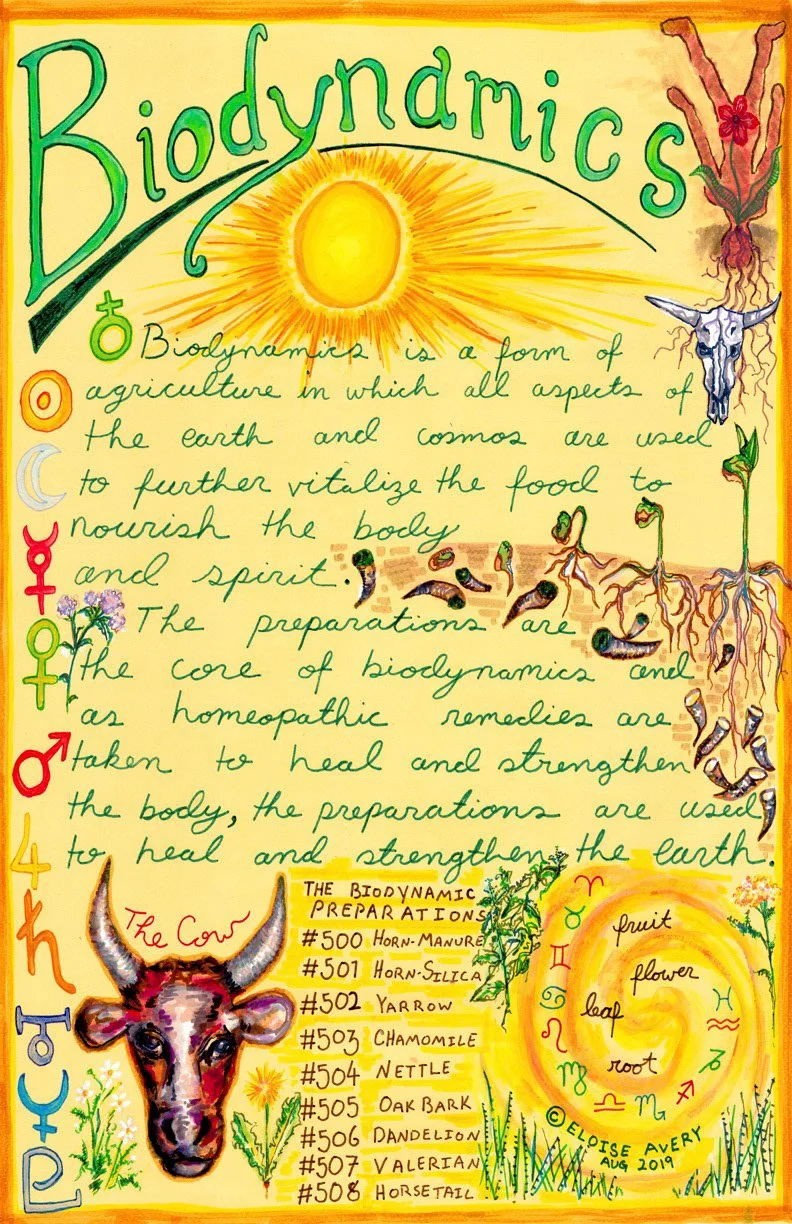 Biodynamics
Biodynamics is a form of
agriculture in which all aspects of
the earth and cosmos are used
to further vitalize the food to
nourish the body
and spirit.
The preparations are
the core of biodynamics and
as homeopathic remedies are
taken to heal and strengthen
the body, the preparations are used
to heal and strengthen the earth.
The Cow
THE BIODYNAMIC
PREPARATIONS
#500 HORN-MANURE
#501 HORN-SILICA
#502 YARROW
#503 CHAMOMILE
#504 NETTLE
#505 OAK BARK
#506 DANDELION
#507 VALERIAN
#508 HORSETAIL
fruit
flower
leaf
root
© ELOISE AVERY
AUG 2019